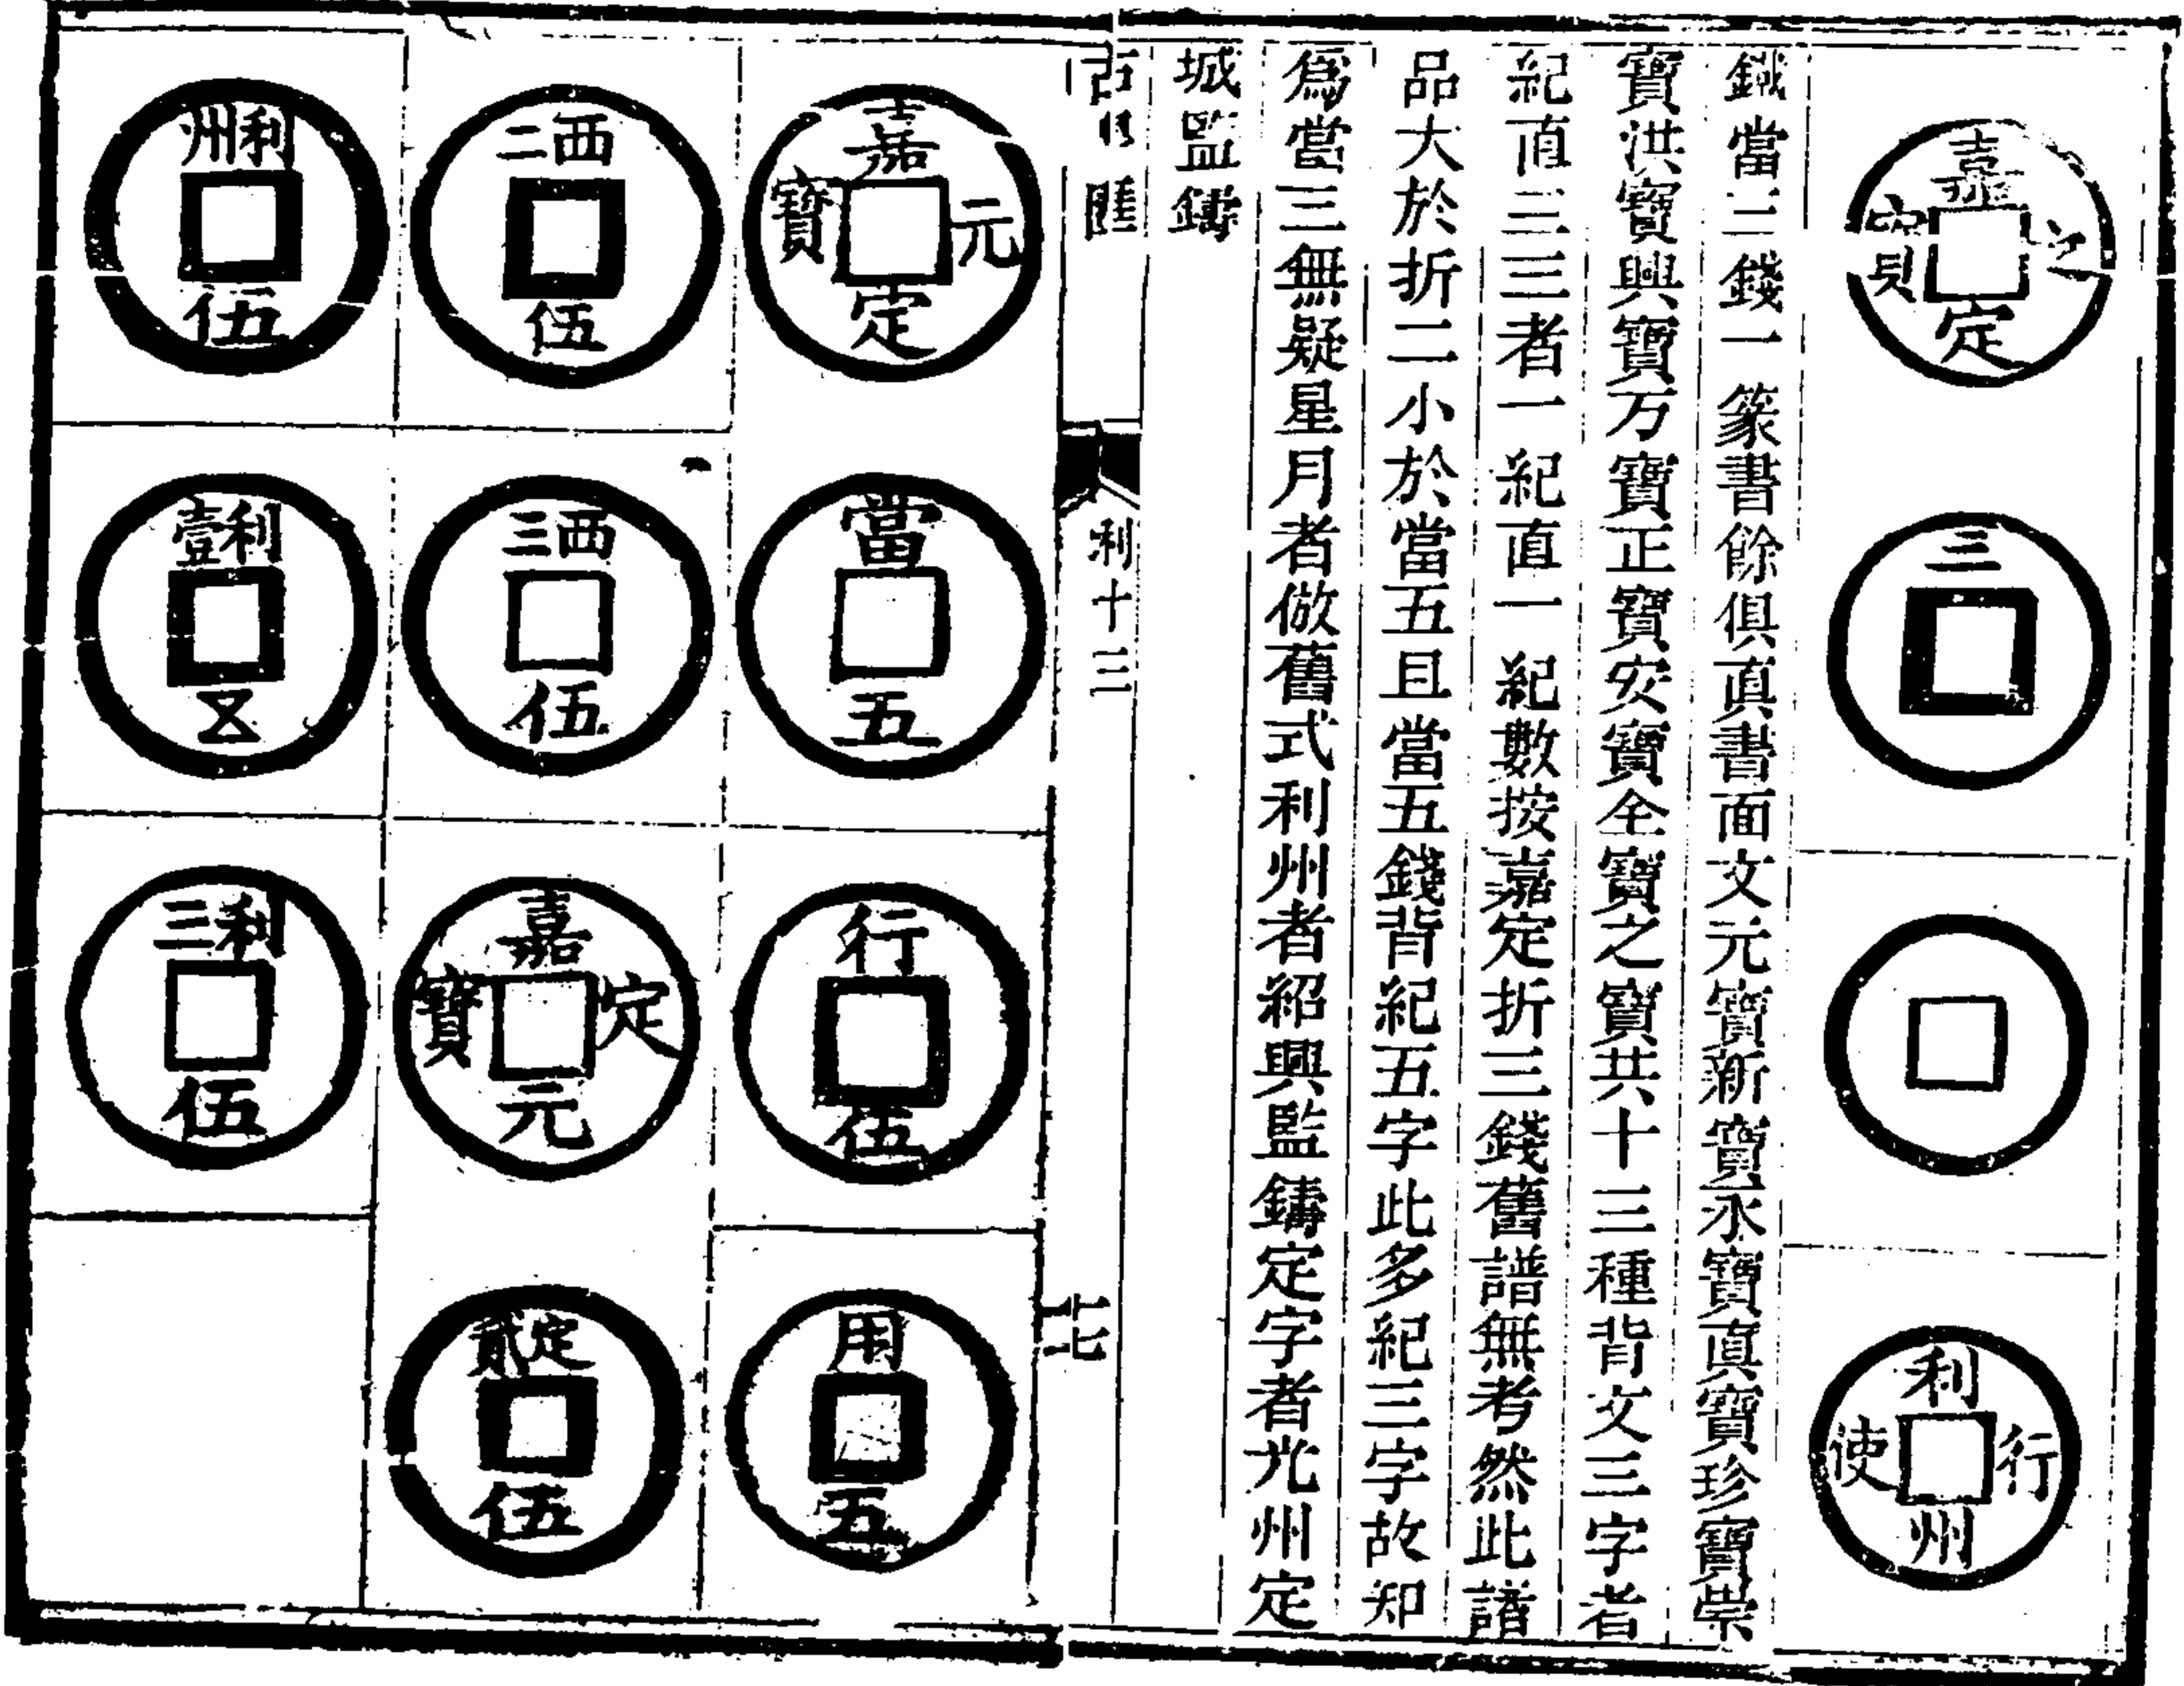 嘉定之寶
三
利州行使
鐵當三錢一篆書餘俱眞書面文元寶新寶永寶眞寶珍寶崇
寶洪寶興寶万寶正寶安寶全寶之寶共十三種背文三字者
紀直三三者一紀直一紀數按嘉定折三錢舊譜無考然此譜
品大於折二小於當五且當五錢背紀五字此多紀三字故知
爲當三無疑星月者倣舊式利州者紹興監鑄定字者光州定
城監鑄
古 匯
利十三
十七
嘉定元寶
當五
行伍
用五
西二伍
西三伍
嘉定元寶
定貳伍
利州伍
利壹五
利三伍